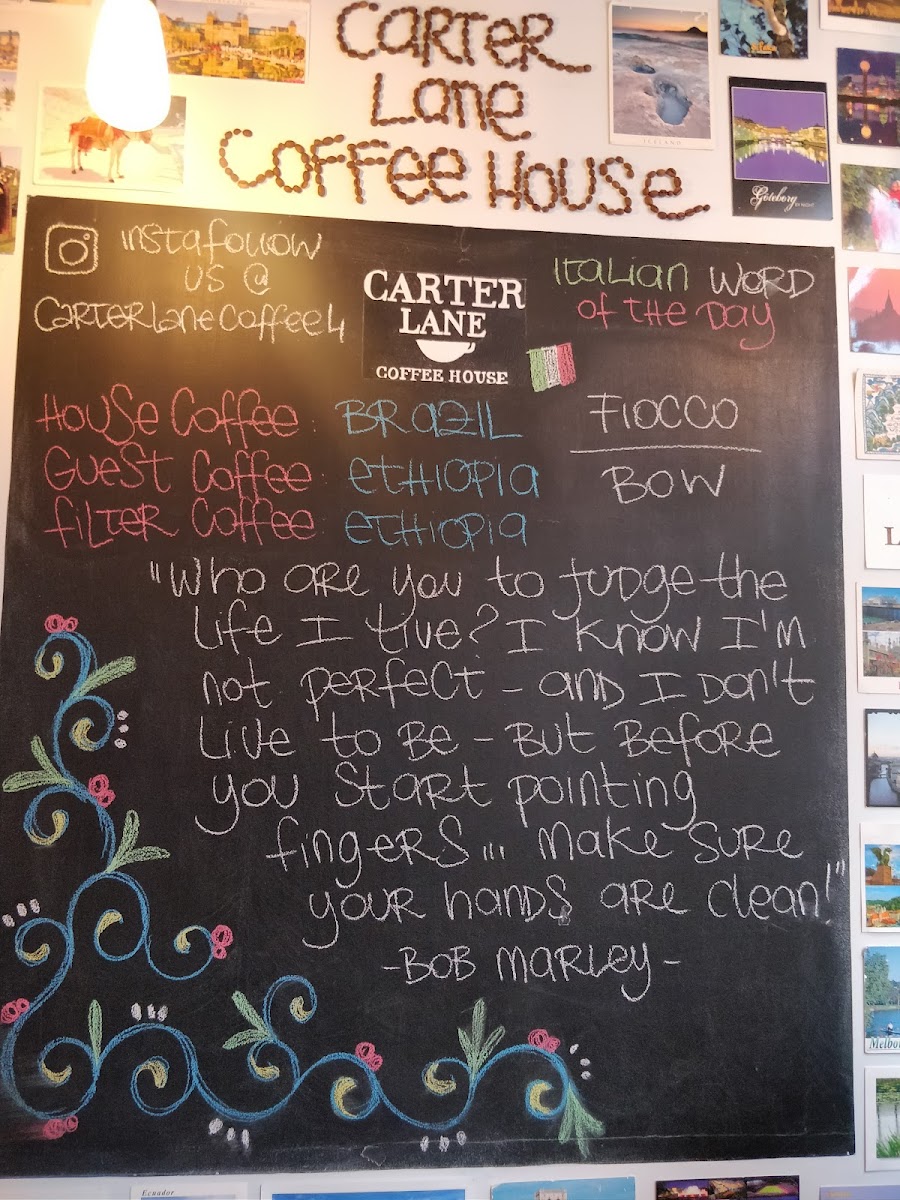 CARTER
LANE
COFFEE HOUSE
ICELAND
Göteborg
BY NIGHT
INSTAFOLLOW
US @
CARTERLANECOFFEE4
CARTER
LANE
COFFEE HOUSE
ITALIAN WORD
OF THE DAY
FIOCCO
BOW
HOUSE COFFEE: BRAZIL
GUEST COFFEE: ETHIOPIA
FILTER COFFEE: ETHIOPIA
"WHO ARE YOU TO JUDGE THE
LIFE I LIVE? I KNOW I'M
NOT PERFECT - AND I DON'T
LIVE TO BE - BUT BEFORE
YOU START POINTING
FINGERS... MAKE SURE
YOUR HANDS ARE CLEAN!"
-BOB MARLEY-
Ecuador